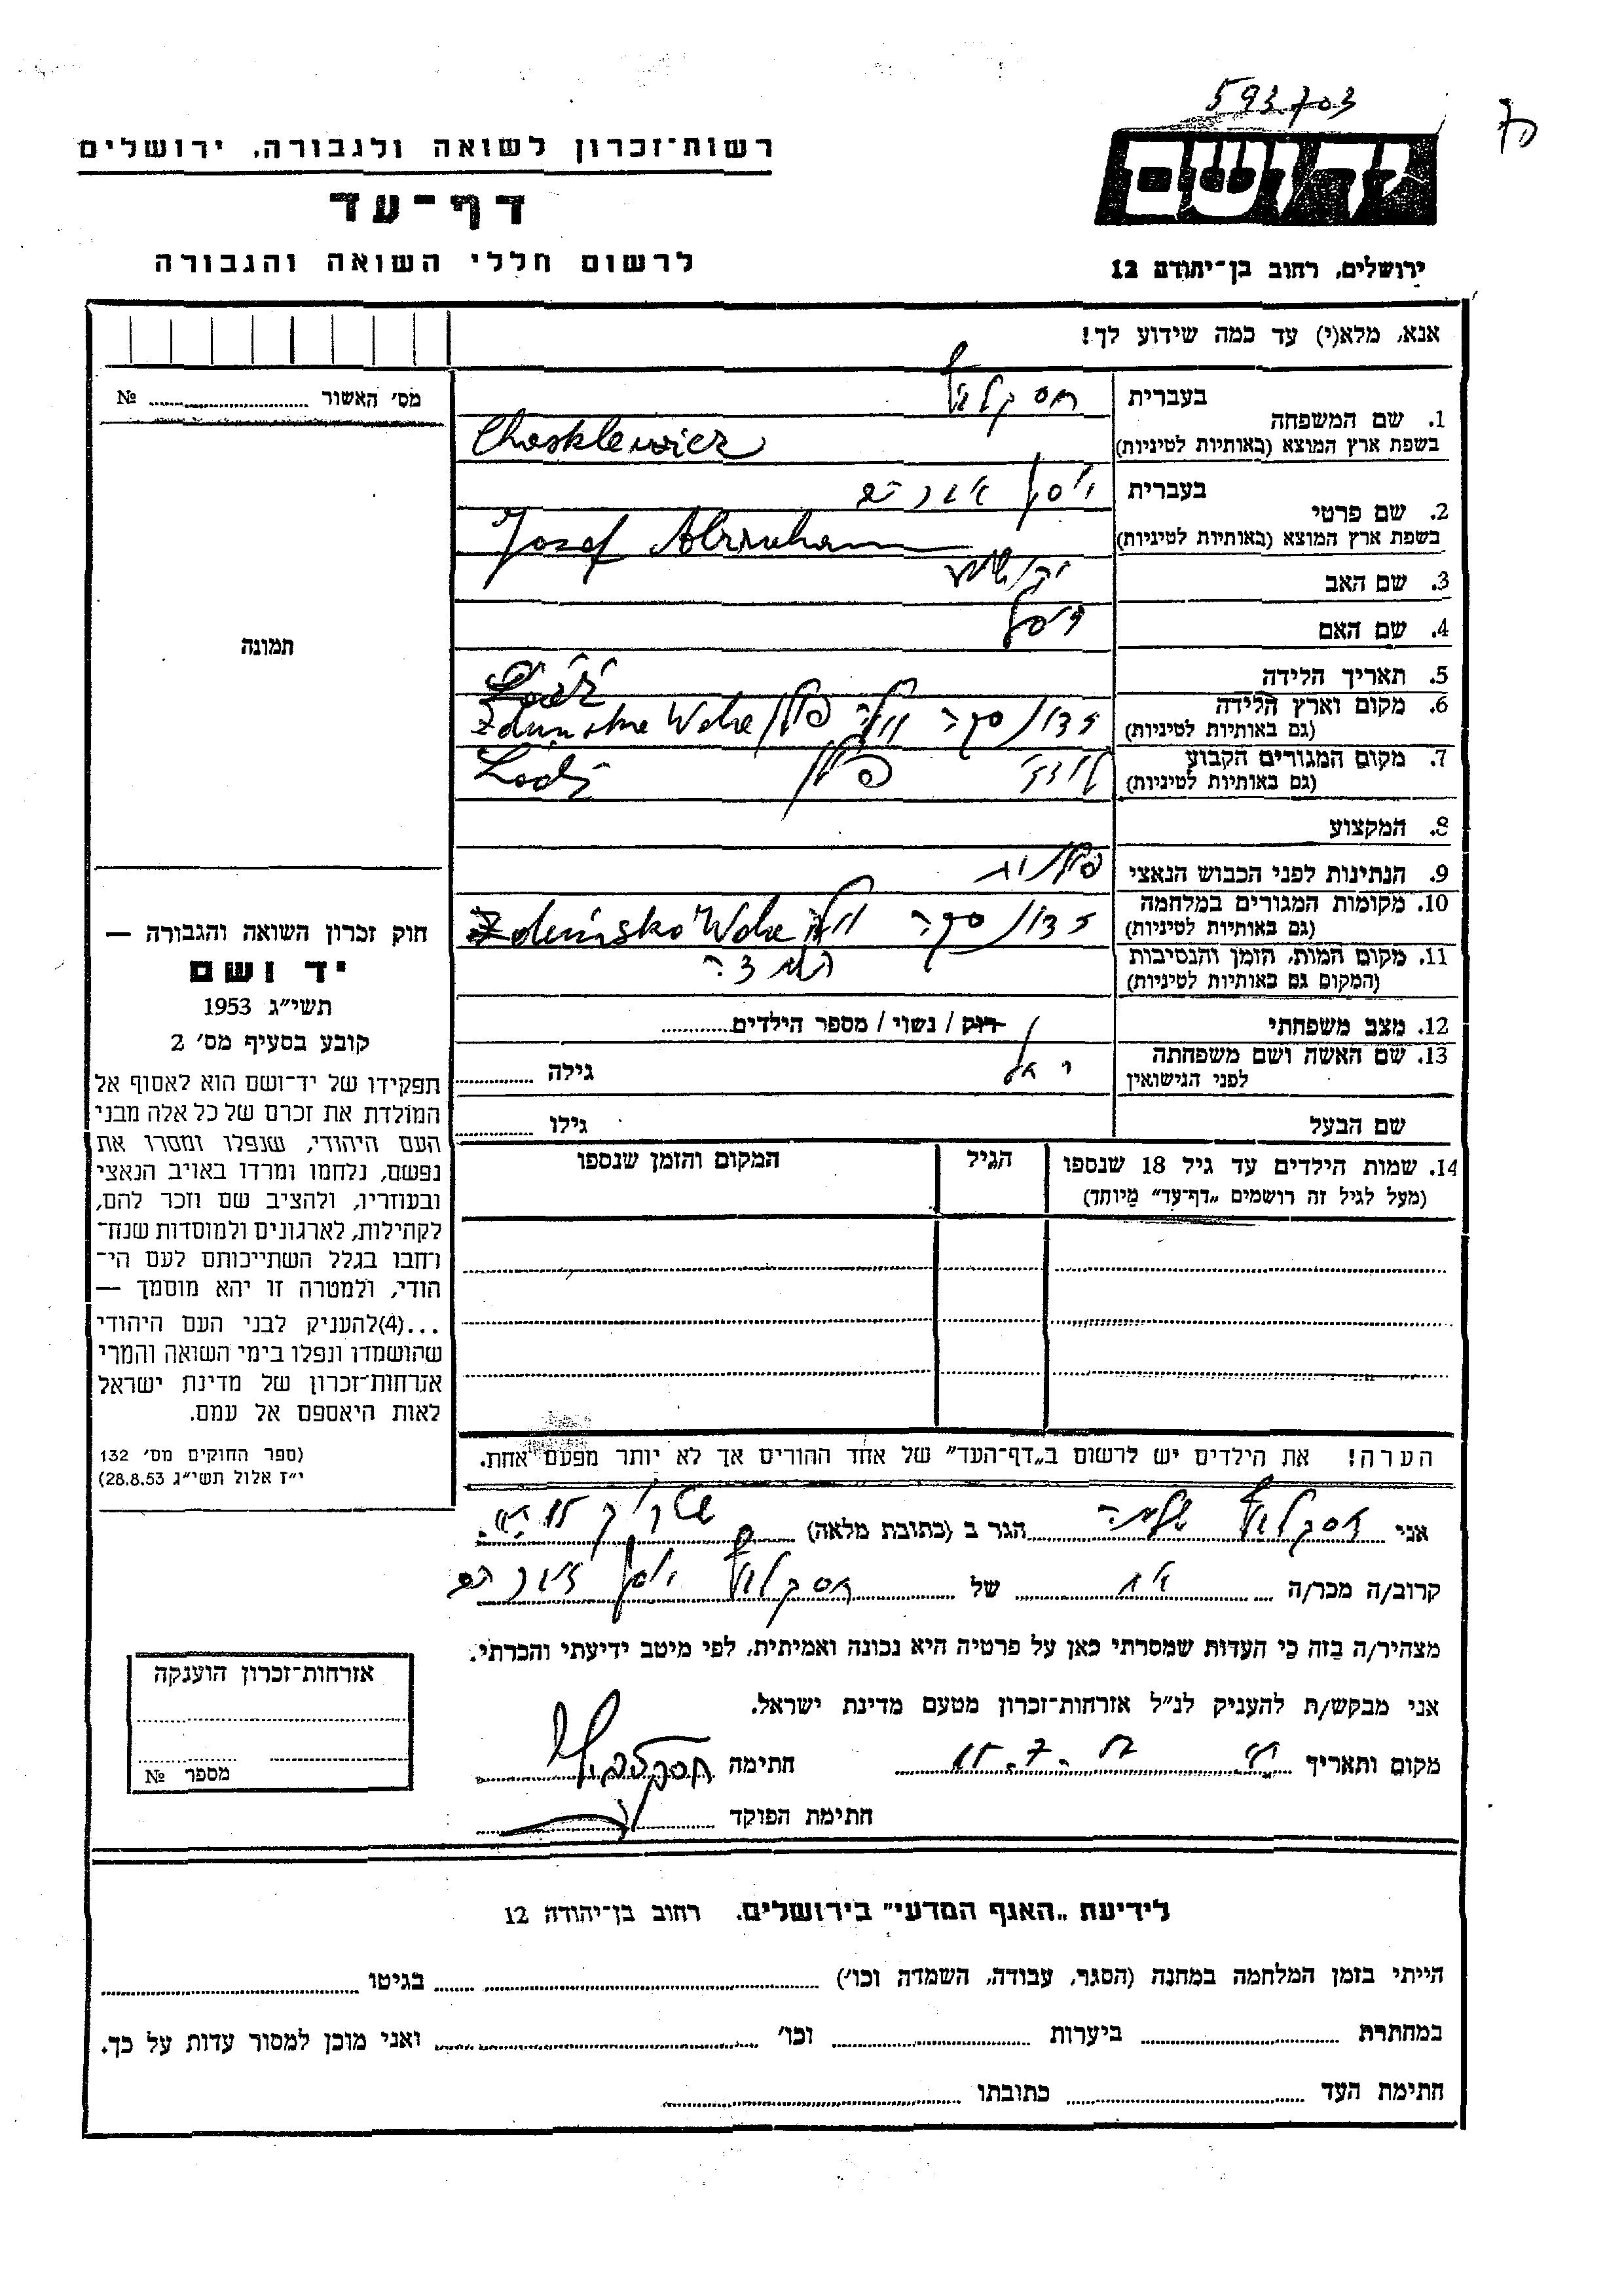 593703
יד ושם
רשות־זכרון לשואה ולגבורה, ירושלים
דף־עד
לרשום חללי השואה והגבורה
ירושלים, רחוב בן־יהודה 12
אנא, מלא(י) עד כמה שידוע לך!
מס׳ האשור ........ №
תמונה
1. שם המשפחה
בעברית
בשפת ארץ המוצא (באותיות לטיניות) Chasklewicz
2. שם פרטי
בעברית יוסף אברהם
בשפת ארץ המוצא (באותיות לטיניות) Josef Abraham
3. שם האב
4. שם האם
5. תאריך הלידה
6. מקום וארץ הלידה
(גם באותיות לטיניות) זדונסקה וולה פולין Zdunska Wola
7. מקום המגורים הקבוע
(גם באותיות לטיניות) לודז׳ פולין Lodz
8. המקצוע
9. הנתינות לפני הכבוש הנאצי פולנית
10. מקומות המגורים במלחמה
(גם באותיות לטיניות) זדונסקה וולה Zdunska Wola
11. מקום המות, הזמן והנסיבות
(המקום גם באותיות לטיניות)
12. מצב משפחתי רוק / נשוי / מספר הילדים........
13. שם האשה ושם משפחתה
לפני הנישואין
גילה ........
שם הבעל גילו ........
14. שמות הילדים עד גיל 18 שנספו הגיל המקום והזמן שנספו
(מעל לגיל זה רושמים „דף־עד” מיוחד)
הערה! את הילדים יש לרשום ב„דף־העד” של אחד ההורים אך לא יותר מפעם אחת.
חוק זכרון השואה והגבורה —
יד ושם
תשי״ג 1953
קובע בסעיף מס׳ 2
תפקידו של יד־ושם הוא לאסוף אל
המולדת את זכרם של כל אלה מבני
העם היהודי, שנפלו ומסרו את
נפשם, נלחמו ומרדו באויב הנאצי
ובעוזריו, ולהציב שם וזכר להם,
לקהילות, לארגונים ולמוסדות שנח־
רחבו בגלל השתייכותם לעם הי־
הודי, ולמטרה זו יהא מוסמך —
...(4)להעניק לבני העם היהודי
שהושמדו ונפלו בימי השואה והמרי
אזרחות־זכרון של מדינת ישראל
לאות היאספם אל עמם.
(ספר החוקים מס׳ 132
י״ז אלול תשי״ג 28.8.53)
אני ........ הגר ב (כתובת מלאה) ........
קרוב/ה מכר/ה אח של ........ יוסף אברהם
מצהיר/ה בזה כי העדות שמסרתי כאן על פרטיה היא נכונה ואמיתית, לפי מיטב ידיעתי והכרתי.
אני מבקש/ת להעניק לנ״ל אזרחות־זכרון מטעם מדינת ישראל.
מקום ותאריך ........ חתימה ........
חתימת הפוקד ........
אזרחות־זכרון הוענקה
מספר №
לידיעת „האגף המדעי” בירושלים. רחוב בן־יהודה 12
הייתי בזמן המלחמה במחנה (הסגר, עבודה, השמדה וכו׳) ........ בגיטו ........
במחתרת ........ ביערות ........ וכו׳ ........ ואני מוכן למסור עדות על כך.
חתימת העד ........ כתובתו ........